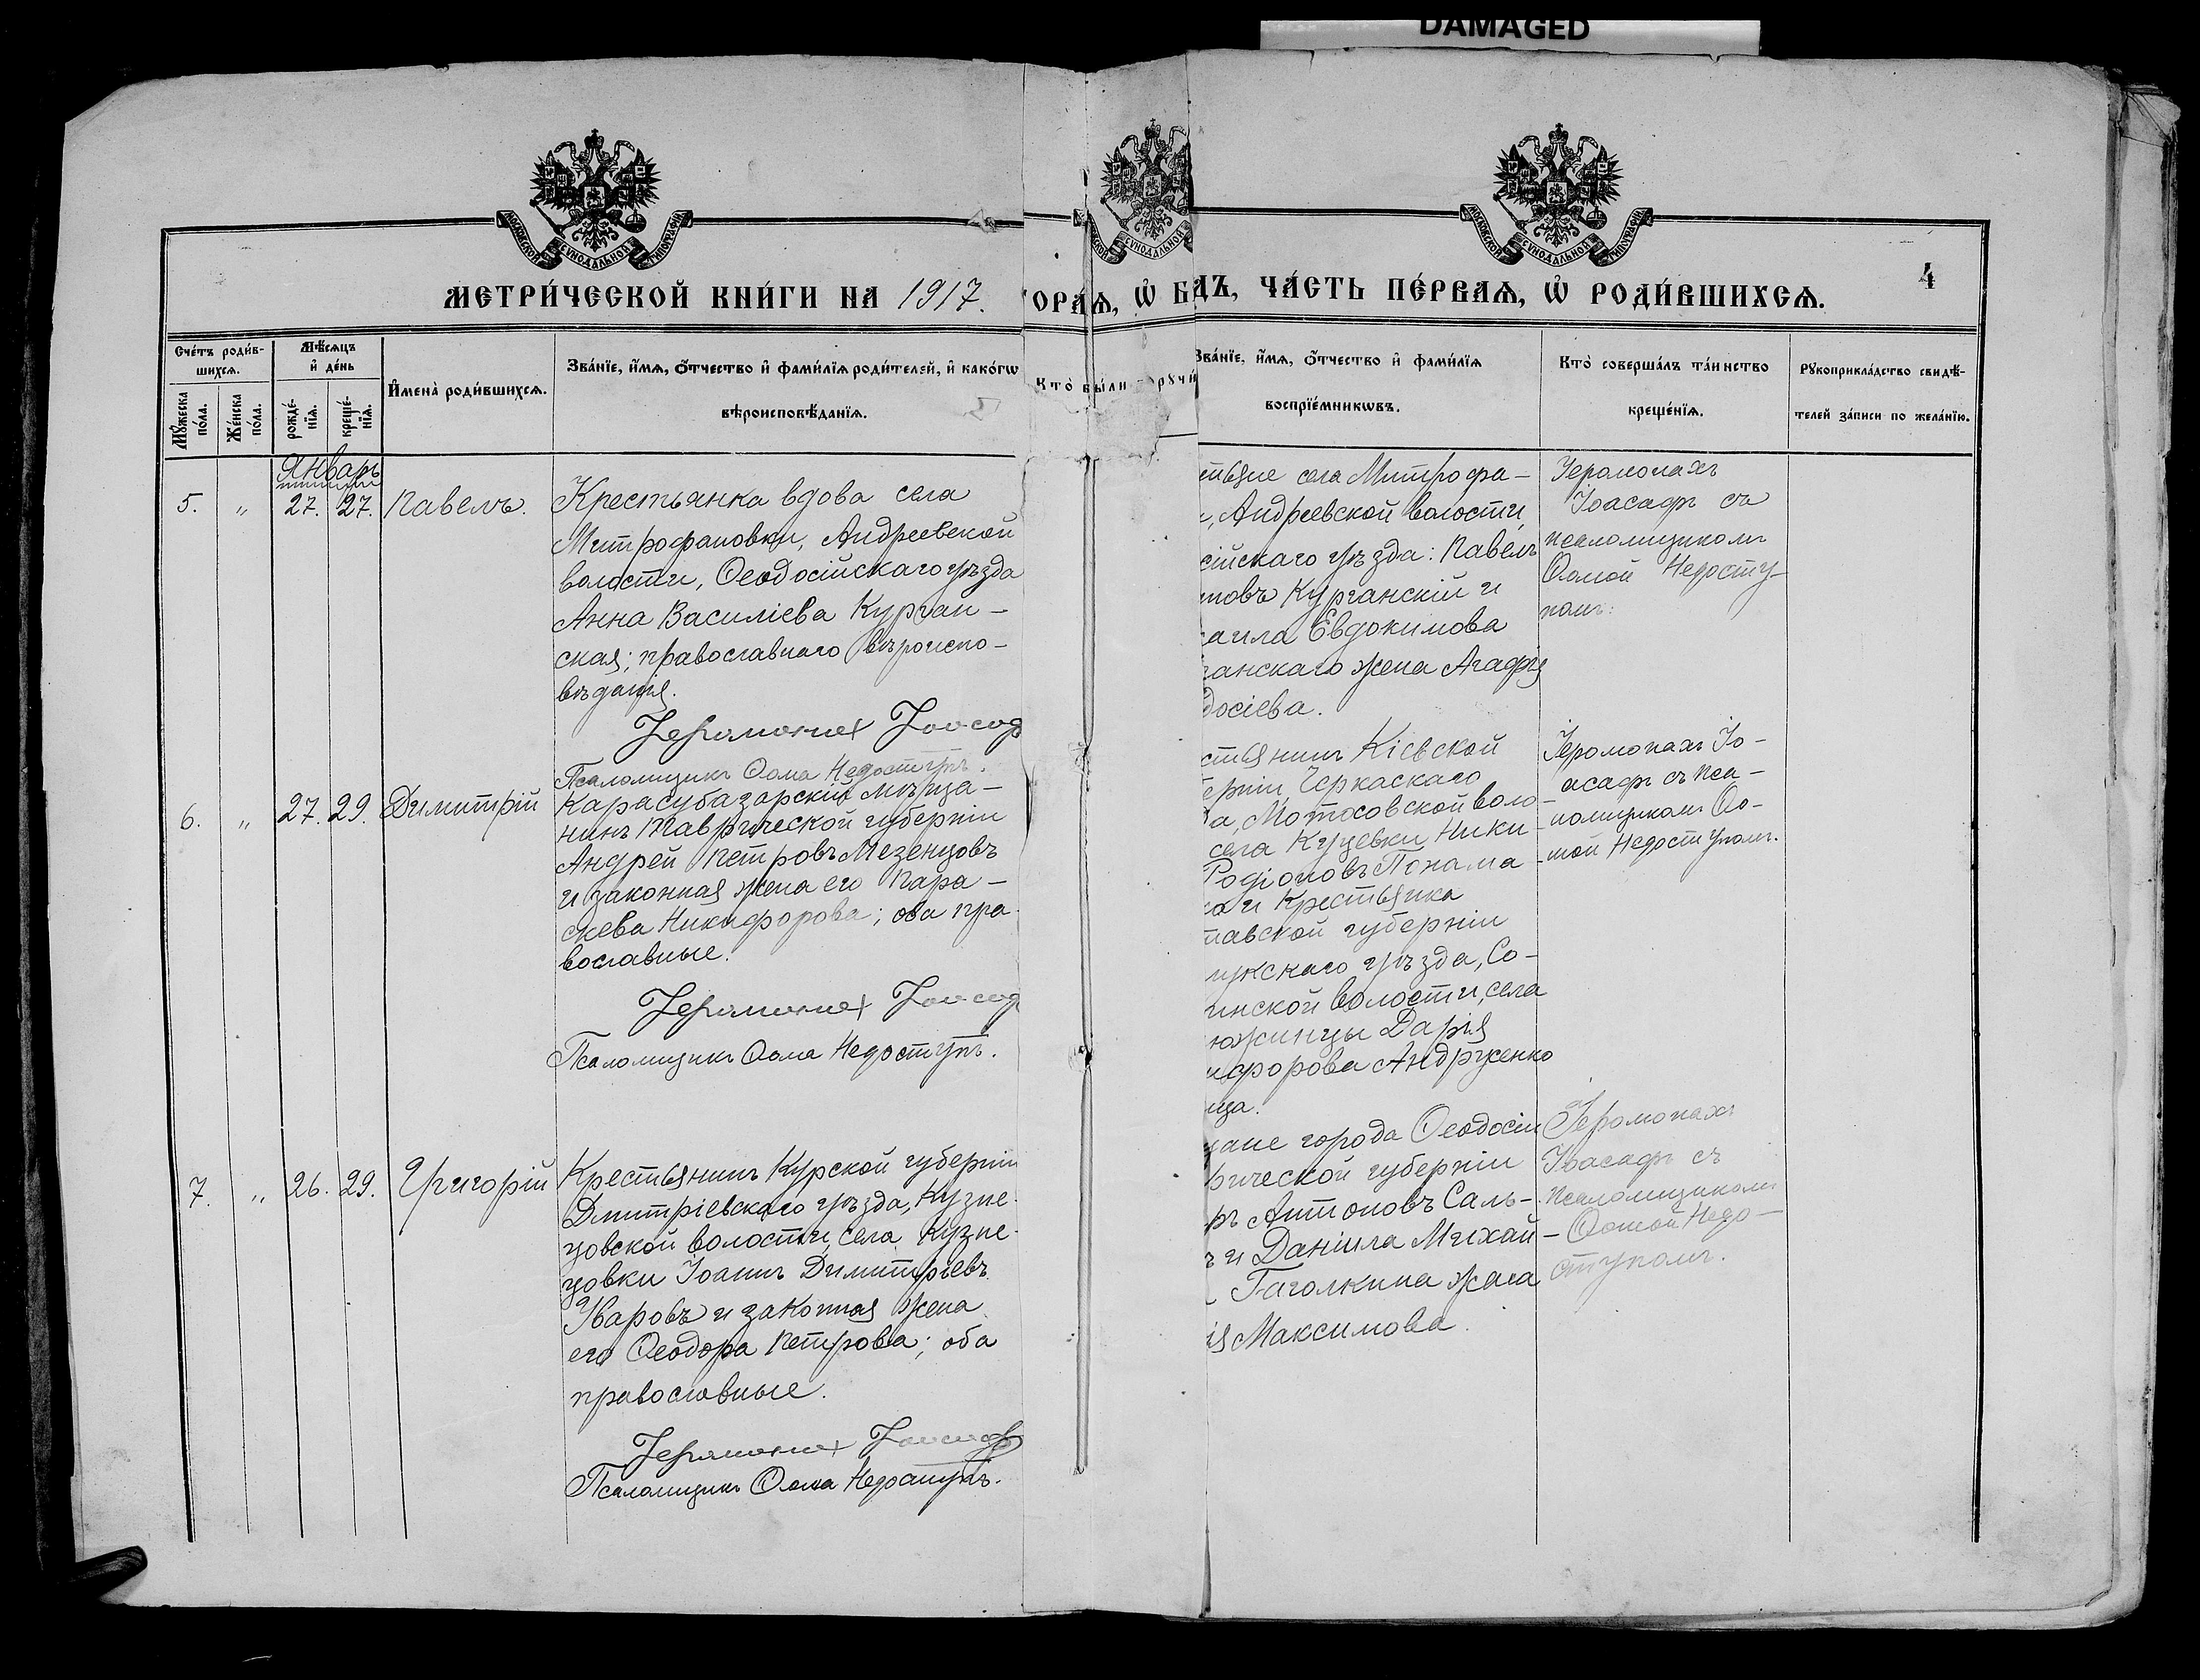 DAMAGED
МОСКОВСКОЙ СУНОДАЛЬНОЙ ТИПОГРАФІИ
СУНОДАЛЬНОЙ
МОСКОВСКОЙ СУНОДАЛЬНОЙ ТИПОГРАФІИ
4
МЕТРИ́ЧЕСКОЙ КНИ́ГИ НА 1917.
ОРА́Ѧ, Ѡ҆ Б
ДЪ, ЧА́СТЬ ПЕ́РВАѦ, Ѡ҆ РОДИ́ВШИХСѦ.
Сче́тъ роди́в-
шихсѧ.
Мѣ́сѧцъ
и҆ де́нь
Мꙋ́жеска по́ла.
Же́нска по́ла.
рожде́-
нїѧ.
креще́-
нїѧ.
И҆мена̀ роди́вшихсѧ.
Зва́нїе, и҆́мѧ, ѻ҆́тчество и҆ фами́лїѧ роди́телей, и҆ како́гѡ
вѣроисповѣ́данїѧ.
Кто̀ бы́ли
рꙋчи́
Зва́нїе, и҆́мѧ, ѻ҆́тчество и҆ фами́лїѧ
воспрїе́мникѡвъ.
Кто̀ соверша́лъ та́инство
креще́нїѧ.
Рꙋкоприкла́дство свидѣ́-
телей за́писи по жела́нїю.
Январь
5. " 27. 27. Павелъ.
Крестьянка вдова села
Митрофановки, Андреевской
волости, Ѳеодосійскаго уѣзда
Анна Василіева Курган-
ская; православнаго вѣроиспо-
вѣданія.
Іеромонах Іоасаф
Псаломщикъ Ѳома Недоступъ.
стьяне села Митрофа-
, Андреевской волости,
сійскаго уѣзда: Павелъ
товъ Курганскій и
аила Евдокимова
ганскаго жена Агафія
досіева.
Іеромонахъ
Іоасафъ съ
псаломщикомъ
Ѳомой Недосту-
помъ.
6. " 27. 29. Димитрій
Карасубазарскій мѣща-
нинъ Таврической губерніи
Андрей Петровъ Мезенцовъ
и законная жена его Пара-
скева Никифорова; оба пра-
вославные.
Іеромонах Іоасаф
Псаломщикъ Ѳома Недоступъ.
стьянинъ Кіевской
ерніи Черкаскаго
а, Мотосовской воло-
села Куцевки Ники-
Родіоновъ Понама
а и Крестьянка
тавской губерніи
укскаго уѣзда, Со-
инской волости, села
южинцы Дарія
ифорова Андрущенко
ца.
Іеромонахъ Іо-
асафъ съ пса-
ломщикомъ Ѳо-
мой Недоступомъ.
7. " 26. 29. Григорій
Крестьянинъ Курской губерніи
Дмитріевскаго уѣзда, Кузне-
цовской волости, села Кузне-
цовки Іоаннъ Димитріевъ
Уваровъ и законная жена
его Ѳеодора Петрова; оба
православные.
Іеромонах Іоасаф
Псаломщикъ Ѳома Недоступъ.
щане города Ѳеодосіи
рической губерніи
ръ Антоновъ Саль-
ъ и Даніила Михай-
Гаголкина жена
ія Максимова.
Іеромонахъ
Іоасафъ съ
псаломщикомъ
Ѳомой Недо-
ступомъ.